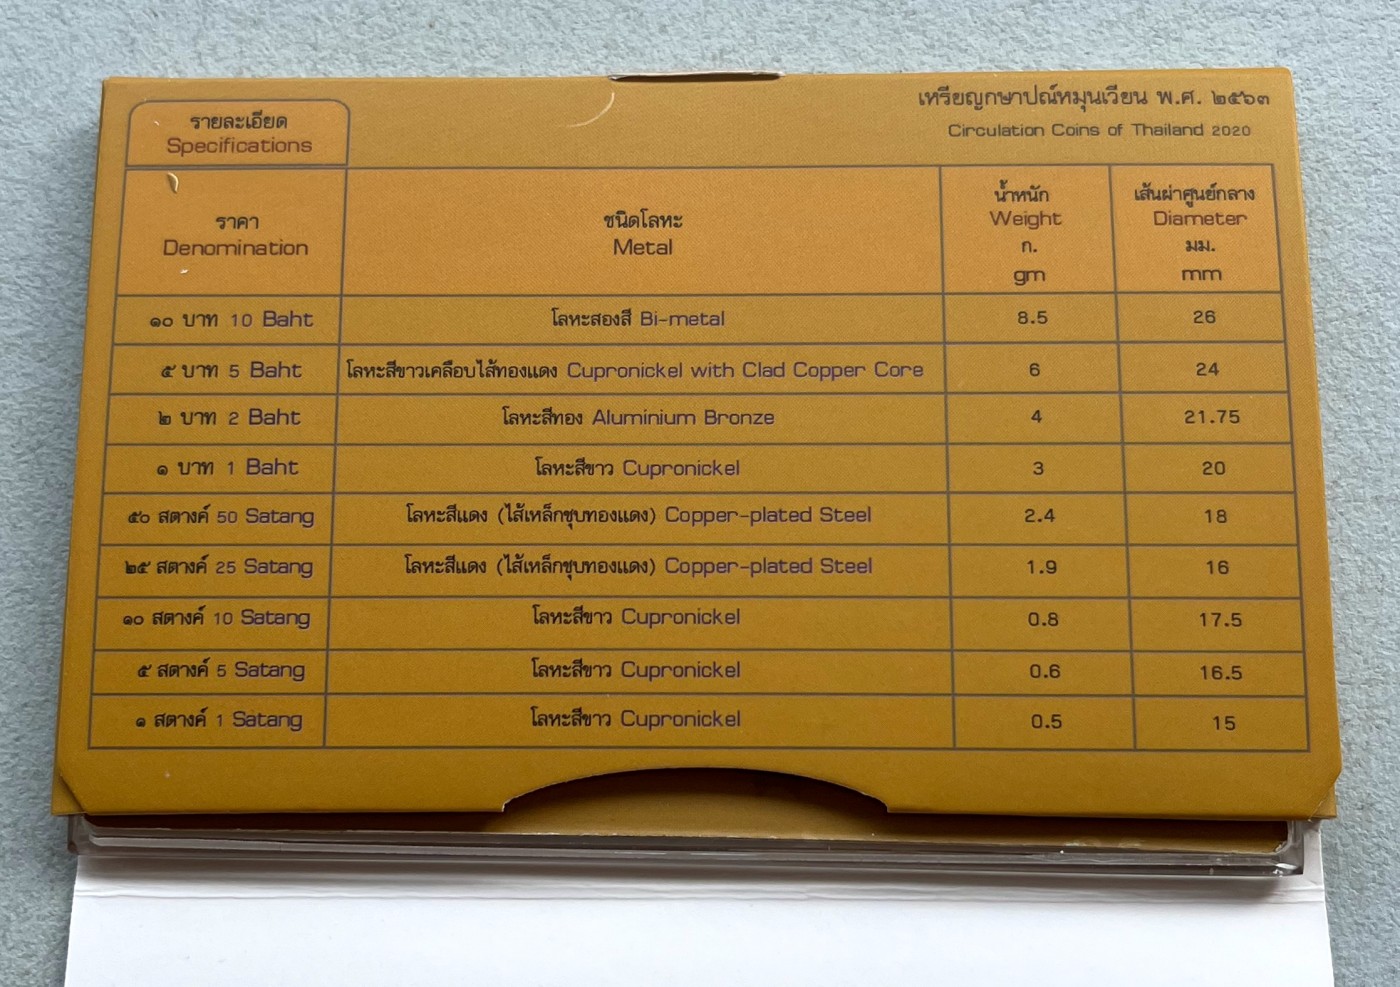 เหรียญกษาปณ์หมุนเวียน พ.ศ. ๒๕๖๓
Circulation Coins of Thailand 2020
รายละเอียด
Specifications
ราคา
Denomination
ชนิดโลหะ
Metal
น้ำหนัก
Weight
ก.
gm
เส้นผ่าศูนย์กลาง
Diameter
มม.
mm
๑๐ บาท 10 Baht โลหะสองสี Bi-metal 8.5 26
๕ บาท 5 Baht โลหะสีขาวเคลือบไส้ทองแดง Cupronickel with Clad Copper Core 6 24
๒ บาท 2 Baht โลหะสีทอง Aluminium Bronze 4 21.75
๑ บาท 1 Baht โลหะสีขาว Cupronickel 3 20
๕๐ สตางค์ 50 Satang โลหะสีแดง (ไส้เหล็กชุบทองแดง) Copper-plated Steel 2.4 18
๒๕ สตางค์ 25 Satang โลหะสีแดง (ไส้เหล็กชุบทองแดง) Copper-plated Steel 1.9 16
๑๐ สตางค์ 10 Satang โลหะสีขาว Cupronickel 0.8 17.5
๕ สตางค์ 5 Satang โลหะสีขาว Cupronickel 0.6 16.5
๑ สตางค์ 1 Satang โลหะสีขาว Cupronickel 0.5 15